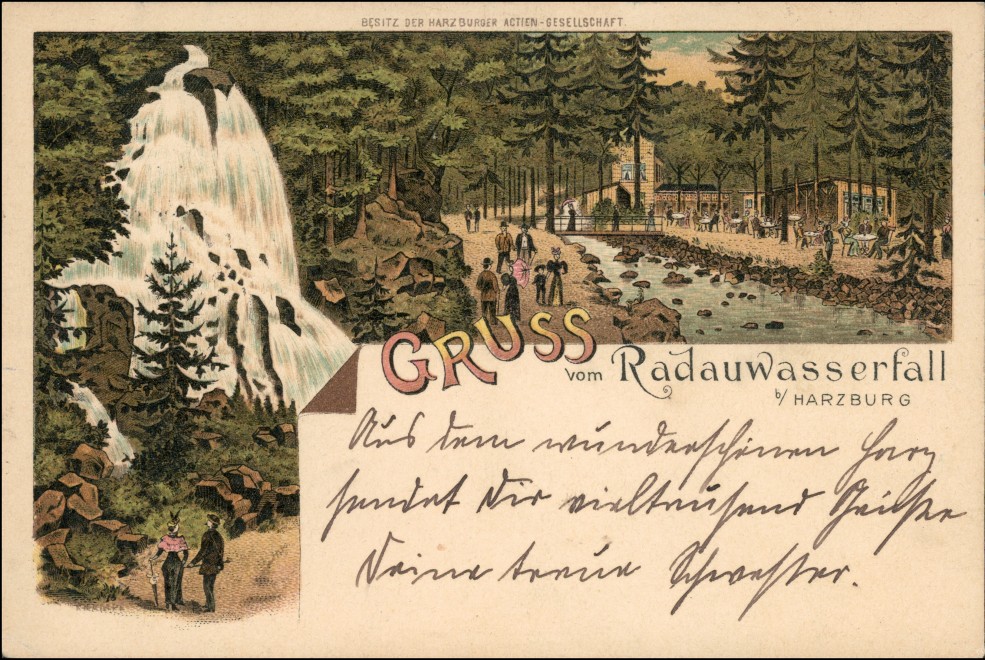 BESITZ DER HARZBURGER ACTIEN-GESELLSCHAFT.
GRUSS
vom Radauwasserfall
b/ HARZBURG
Aus dem wunderschönen Harz
sendet Dir vieltausend Grüße
Deine treue Schwester.